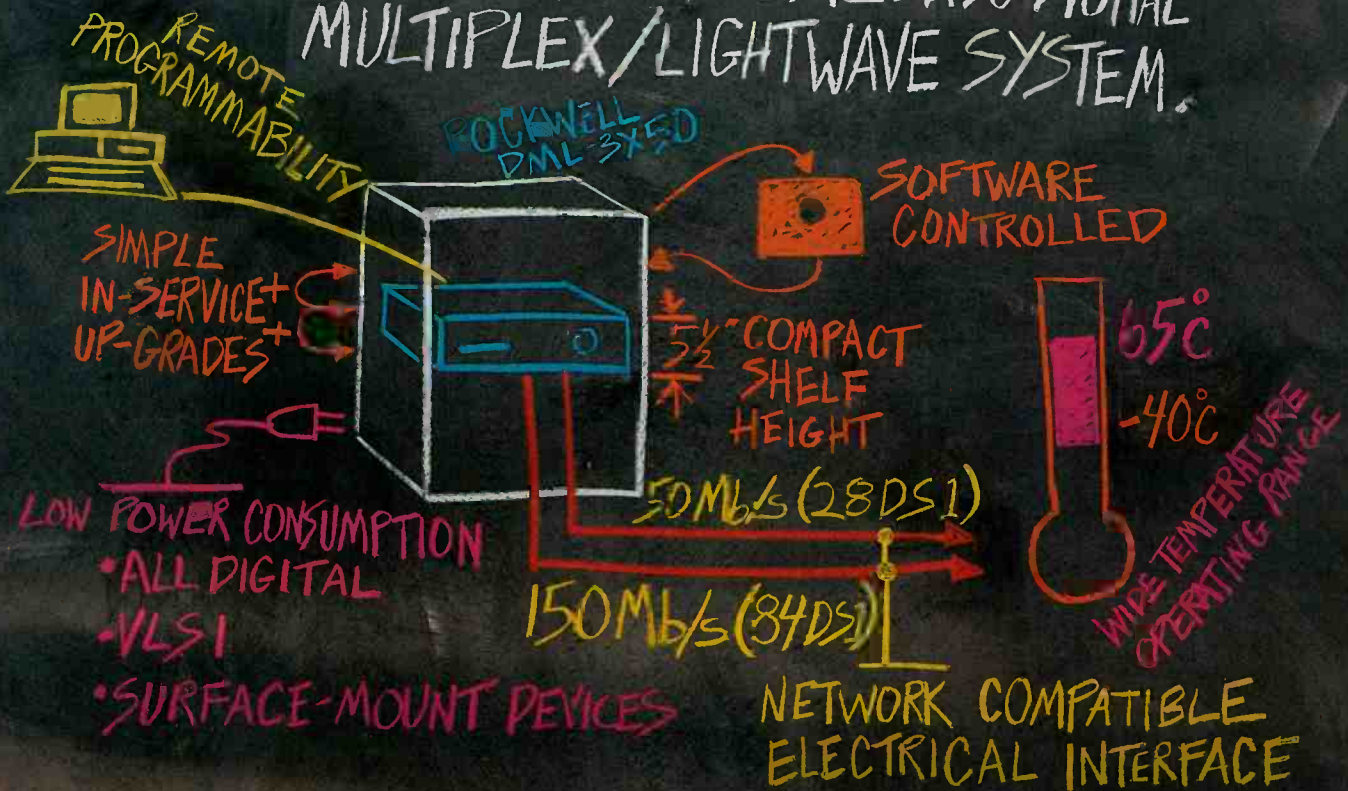 MULTIPLEX/LIGHTWAVE SYSTEM.
REMOTE
PROGRAMMABILITY
ROCKWELL
DML-3X50
SOFTWARE
CONTROLLED
SIMPLE
IN-SERVICE+
UP-GRADES+
5½" COMPACT
SHELF
HEIGHT
65°C
-40°C
WIDE TEMPERATURE
OPERATING RANGE
LOW POWER CONSUMPTION
•ALL DIGITAL
•VLSI
•SURFACE-MOUNT DEVICES
50Mb/s (28DS1)
150Mb/s (84DS1)
NETWORK COMPATIBLE
ELECTRICAL INTERFACE